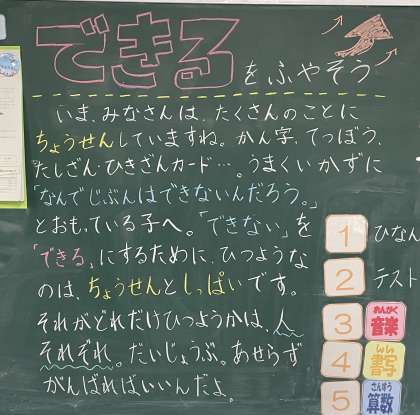 できるをふやそう
いま、みなさんは、たくさんのことに
ちょうせんしていますね。かん字、てつぼう、
たしざん・ひきざんカード…。うまくいかずに
「なんでじぶんはできないんだろう。」
とおもっている子へ。「できない」を
「できる」にするために、ひつような
のは、ちょうせんとしっぱいです。
それがどれだけひつようかは、人
それぞれ。だいじょうぶ。あせらず
がんばればいいんだよ。
1 ひなん
2 テスト
3 おんがく 音楽
4 しょしゃ 書写
5 さんすう 算数